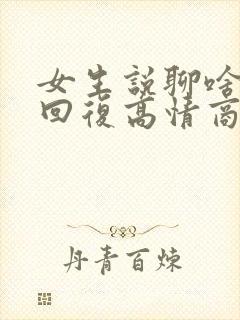 女生說聊啥
回復高情商
丹青百煉